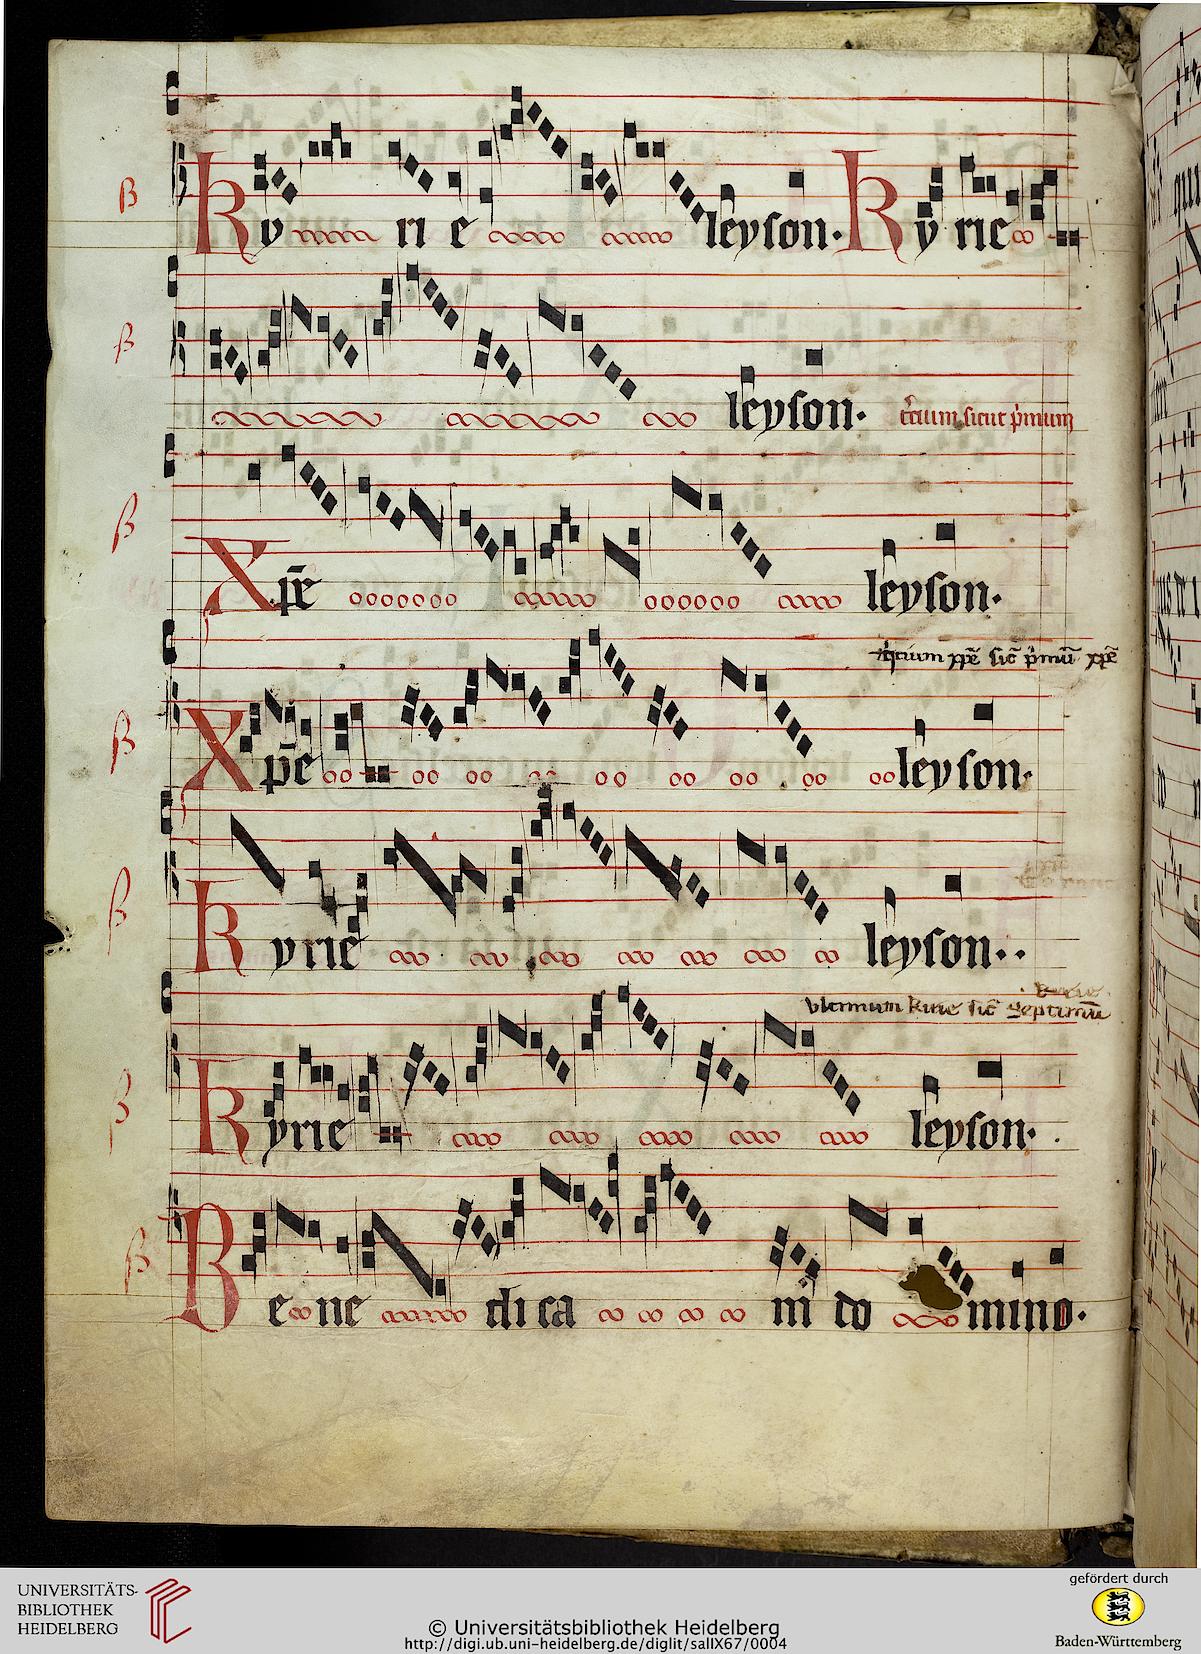 ß Ky ri e leyson. Kyrie
ß leyson. t͛cium sicut p͛mum
ß Xp̄e leyson.
t͛cium xp̄e sic̄ p͛mū xp̄e
ß Xp̄e leyson.
ß Kyrie leyson..
ultimum kirie sic̄ septimū
ß Kyrie leyson.
ß Be ne di ca m᷑ do mino.
UNIVERSITÄTS-
BIBLIOTHEK
HEIDELBERG
© Universitätsbibliothek Heidelberg
http://digi.ub.uni-heidelberg.de/diglit/salIX67/0004
gefördert durch
Baden-Württemberg